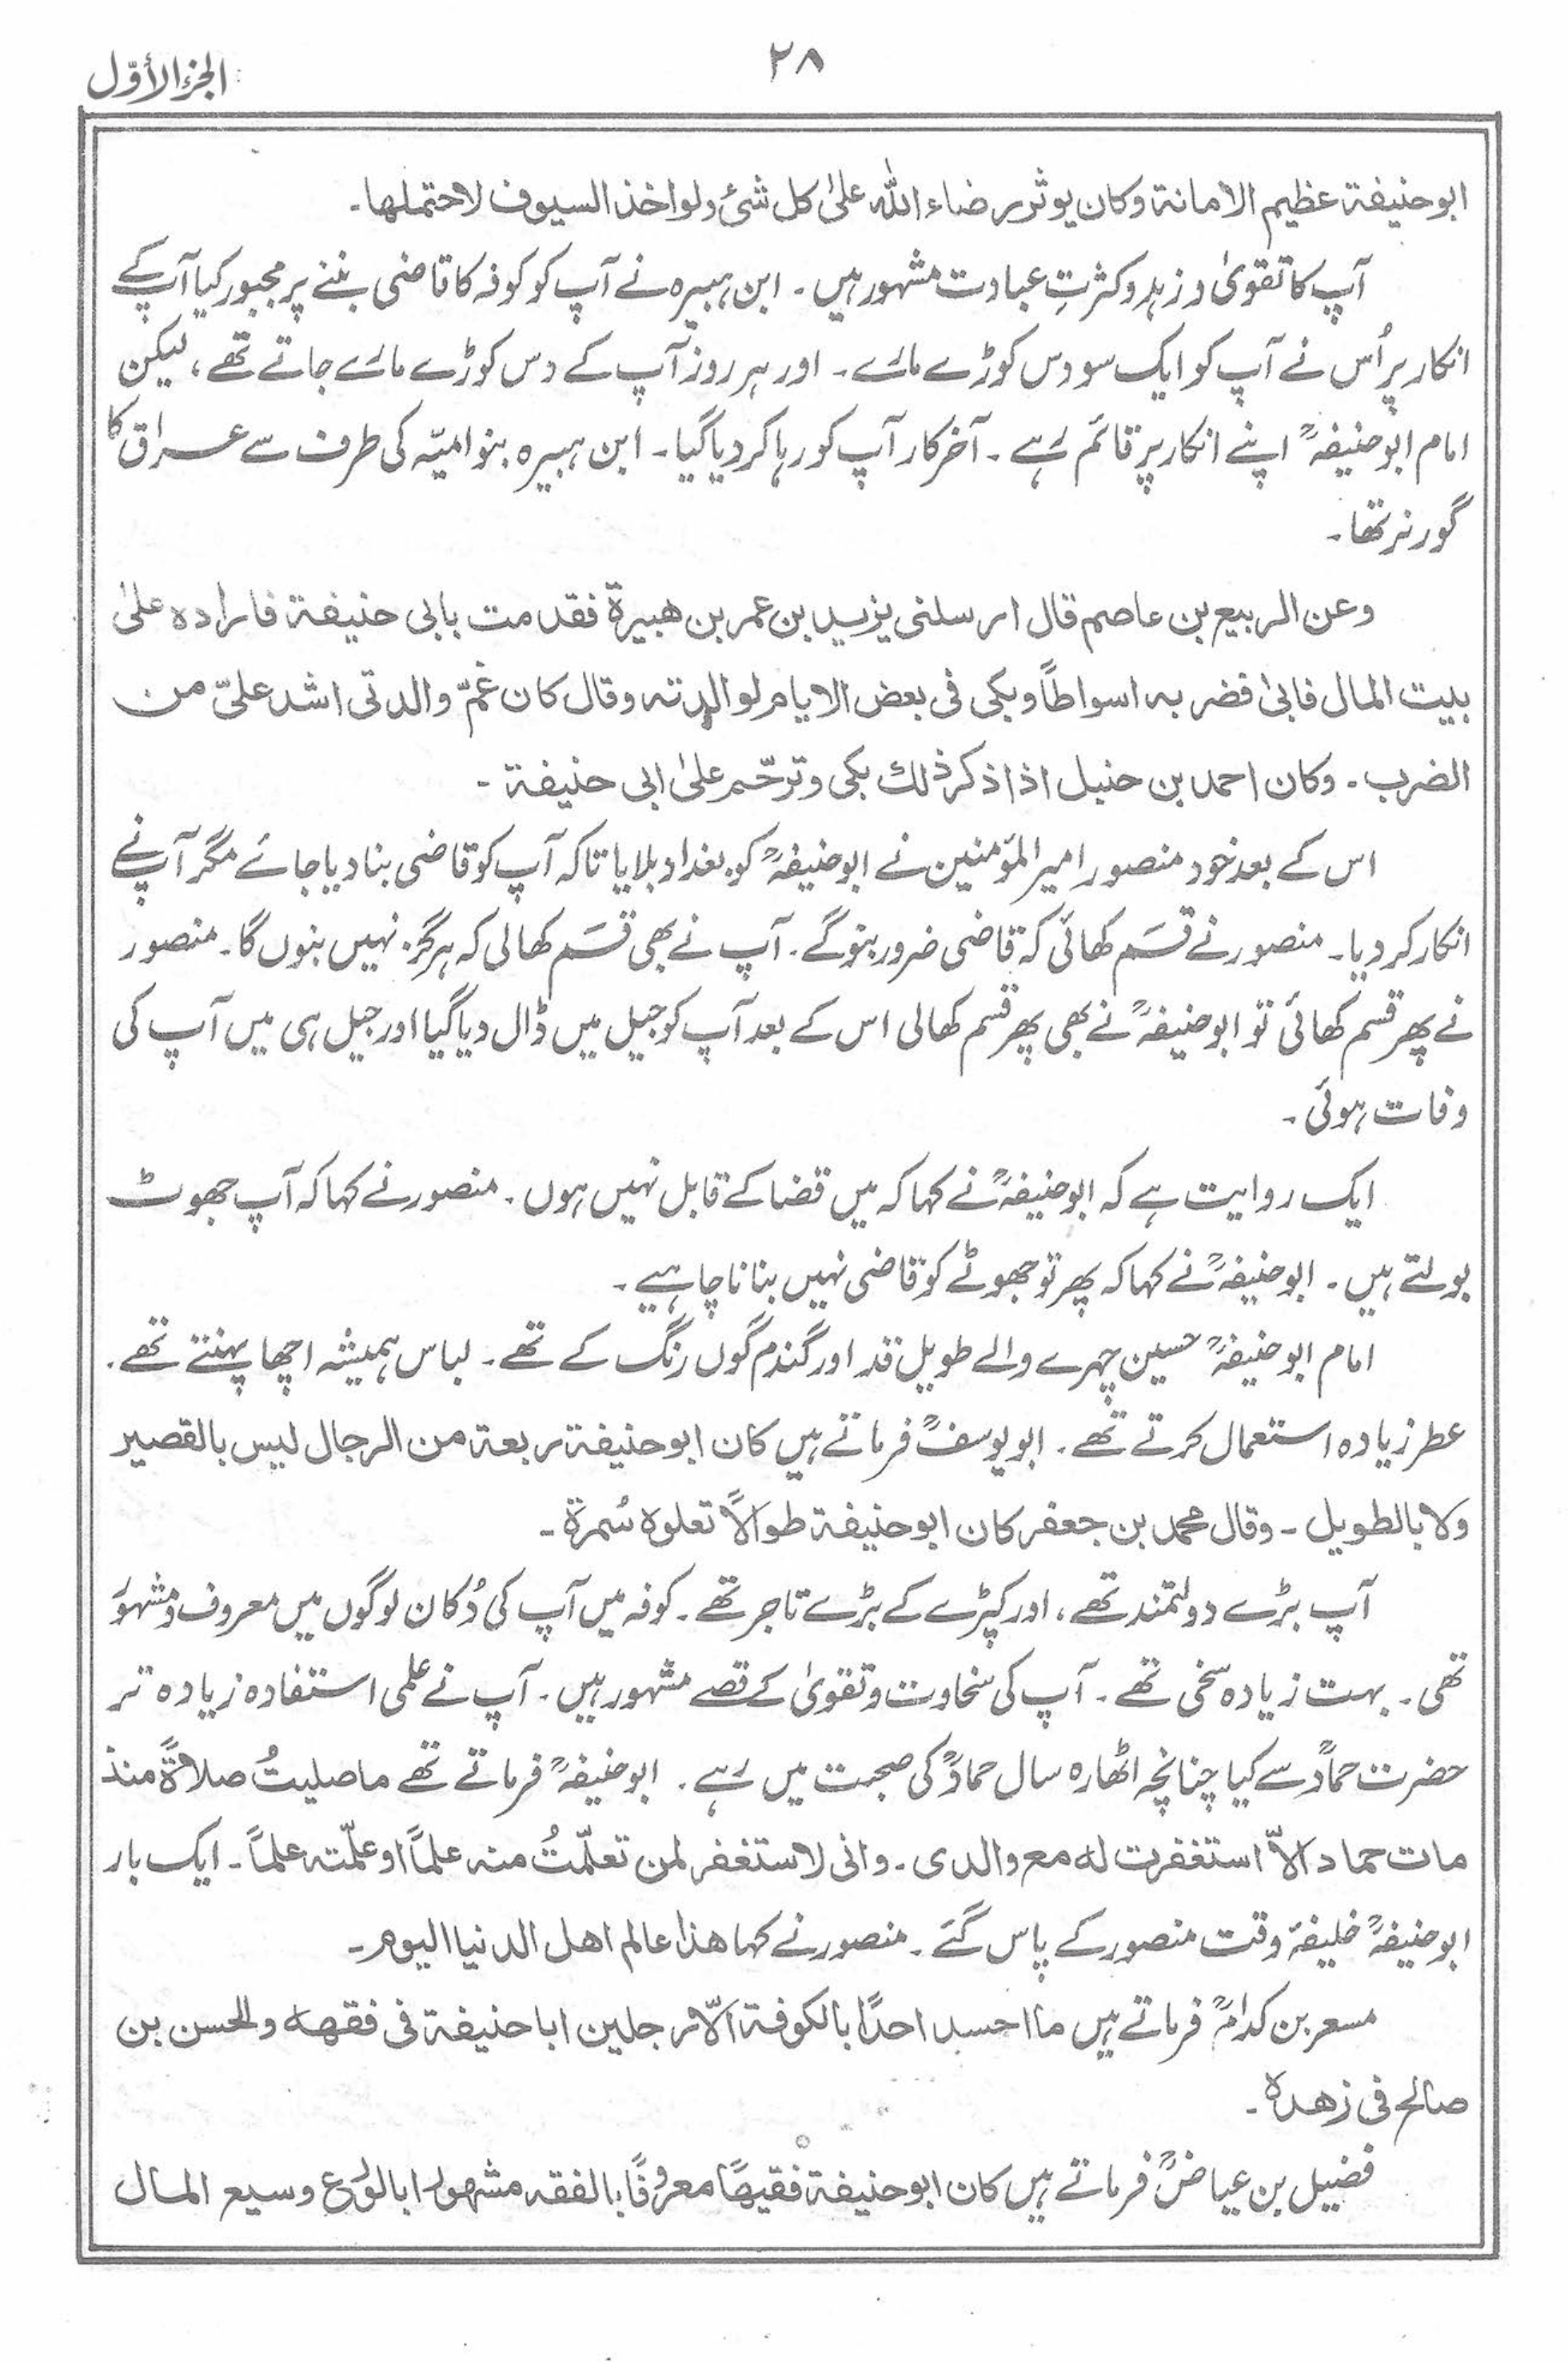 الجزء الأوّل
٢٨
ابو حنيفة عظيم الامانة وكان يوثر رضاء الله علىٰ كل شئ ولو اخذ السيوف لاحتملها۔
آپ کا تقویٰ و زہد و کثرتِ عبادت مشہور ہیں۔ ابن ہبیرہ نے آپ کو کوفہ کا قاضی بننے پر مجبور کیا آپ کے
انکار پر اُس نے آپ کو ایک سو دس کوڑے مارے۔ اور ہر روز آپ کے دس کوڑے مارے جاتے تھے، لیکن
امام ابو حنیفہؒ اپنے انکار پر قائم رہے۔ آخر کار آپ کو رہا کر دیا گیا۔ ابن ہبیرہ بنو امیّہ کی طرف سے عراق کا
گورنر تھا۔
وعن الربيع بن عاصم قال ارسلنى يزيد بن عمر بن هبيرة فقدمت بابى حنيفة فاراده علىٰ
بيت المال فابىٰ فضربه اسواطاً وبكى فى بعض الايام لوالدته وقال كان غمّ والدتى اشد علىّ من
الضرب۔ وكان احمد بن حنبل اذا ذكر ذلك بكى وترحّم علىٰ ابى حنيفة۔
اس کے بعد خود منصور امیر المؤمنین نے ابو حنیفہؒ کو بغداد بلایا تاکہ آپ کو قاضی بنا دیا جائے مگر آپ نے
انکار کر دیا۔ منصور نے قسَم کھائی کہ قاضی ضرور بنو گے۔ آپ نے بھی قسَم کھالی کہ ہرگز نہیں بنوں گا۔ منصور
نے پھر قسم کھائی تو ابو حنیفہؒ نے بھی پھر قسم کھالی اس کے بعد آپ کو جیل میں ڈال دیا گیا اور جیل ہی میں آپ کی
وفات ہوئی۔
ایک روایت ہے کہ ابو حنیفہؒ نے کہا کہ میں قضا کے قابل نہیں ہوں۔ منصور نے کہا کہ آپ جھوٹ
بولتے ہیں۔ ابو حنیفہؒ نے کہا کہ پھر تو جھوٹے کو قاضی نہیں بنانا چاہیے۔
امام ابو حنیفہؒ حسین چہرے والے طویل قد اور گندم گوں رنگ کے تھے۔ لباس ہمیشہ اچھا پہنتے تھے۔
عطر زیادہ استعمال کرتے تھے۔ ابو یوسفؒ فرماتے ہیں كان ابو حنيفة ربعة من الرجال ليس بالقصير
ولا بالطويل۔ وقال محمد بن جعفر كان ابو حنيفة طوالاً تعلوه سُمرة۔
آپ بڑے دولتمند تھے، اور کپڑے کے بڑے تاجر تھے۔ کوفہ میں آپ کی دُکان لوگوں میں معروف و مشہور
تھی۔ بہت زیادہ سخی تھے۔ آپ کی سخاوت و تقویٰ کے قصے مشہور ہیں۔ آپ نے علمی استفادہ زیادہ تر
حضرت حمادؒ سے کیا چنانچہ اٹھارہ سال حمادؒ کی صحبت میں رہے۔ ابو حنیفہؒ فرماتے تھے ما صليتُ صلاةً منذ
مات حماد الاّ استغفرت له مع والدى۔ وانى لاستغفر لمن تعلّمتُ منه علماً او علّمته علماً۔ ایک بار
ابو حنیفہؒ خلیفۂ وقت منصور کے پاس گئے۔ منصور نے کہا هذا عالم اهل الدنيا اليوم۔
مسعر بن کدامؒ فرماتے ہیں ما احسد احدًا بالكوفة الّا رجلين ابا حنيفة فى فقهه والحسن بن
صالح فى زهده۔
فضیل بن عیاضؒ فرماتے ہیں كان ابو حنيفة فقيهًا معروفًا بالفقه مشهورا بالوَرع وسيع المال